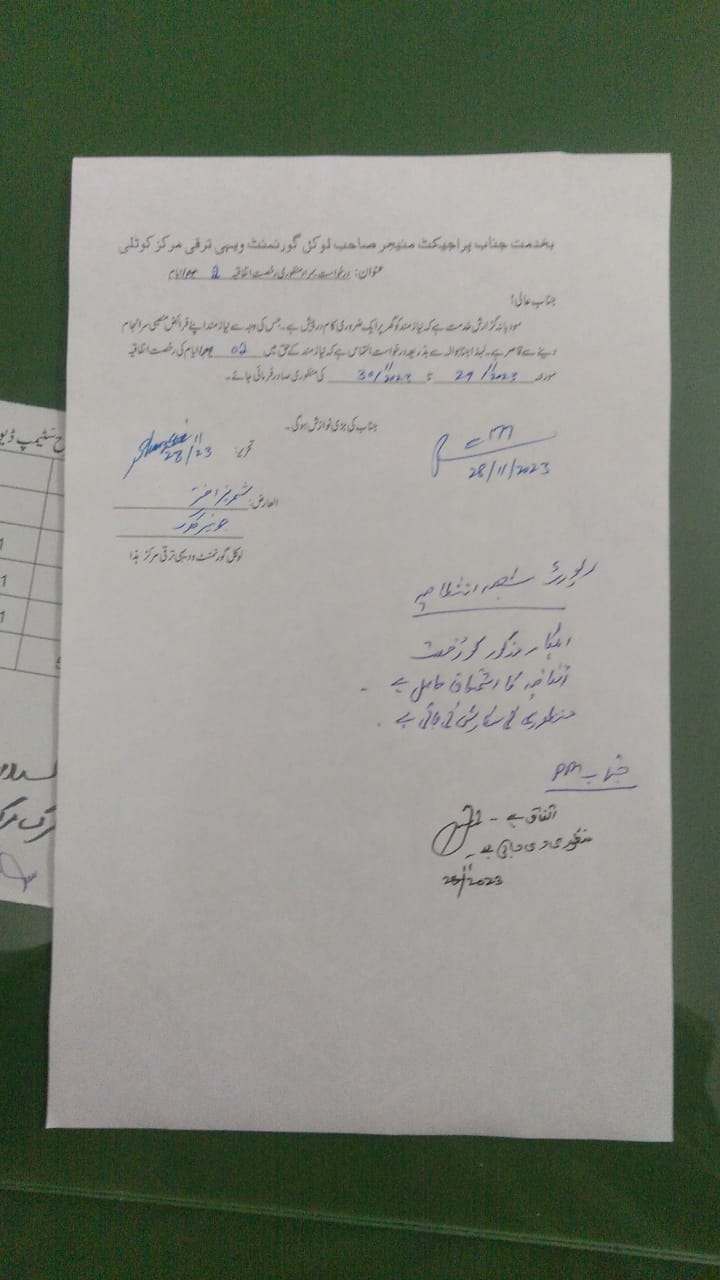 بخدمت جناب پراجیکٹ منیجر صاحب لوکل گورنمنٹ ودیہی ترقی مرکز کوٹلی
عنوان: درخواست بمراد منظوری رخصت اتفاقیہ 2 ایام
جناب عالی!
مودبانہ گزارش خدمت ہے کہ نیازمند کو گھر پر ایک ضروری کام درپیش ہے۔ جس کی وجہ سے نیازمند اپنے فرائض منصبی سرانجام
دینے سے قاصر ہے۔ لہذا بذریعہ درخواست التماس ہے کہ نیازمند کے حق میں 02 ایام کی رخصت اتفاقیہ
مورخہ 29/11/2023 تا 30/11/2023 کی منظوری صادر فرمائی جائے۔
جناب کی بڑی نوازش ہوگی۔
تحریر: 28/11/23
28/11/2023
العارض: اختر
لوکل گورنمنٹ ودیہی ترقی مرکز ہذا
رپورٹ شعبہ انتظامیہ
اہلکار مذکور کو رخصت
اتفاقیہ کا استحقاق حاصل ہے۔
منظوری کی سفارش کی جاتی ہے۔
جناب PM
اتفاق ہے۔
منظوری دی جاتی ہے۔
28/11/2023
1
1
1